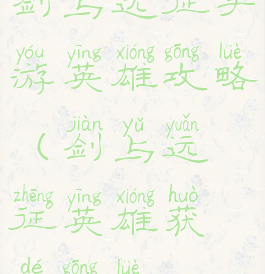 剑与远征手
yóu yīng xióng gōng lüè
游英雄攻略
jiàn yǔ yuǎn
(剑与远
zhēng yīng xióng huò
征英雄获
dé gōng lüè